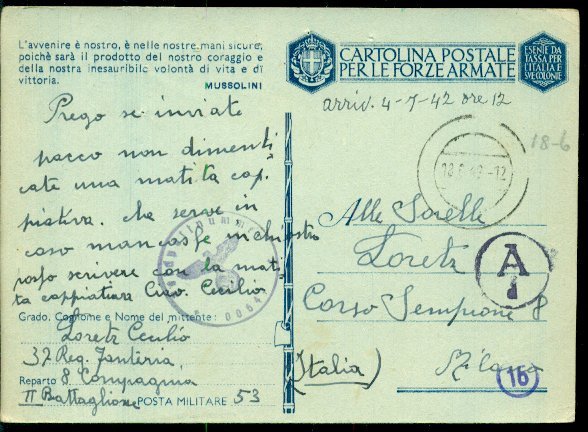 L'avvenire è nostro, è nelle nostre mani sicure,
poichè sarà il prodotto del nostro coraggio e
della nostra inesauribile volontà di vita e di
vittoria.
MUSSOLINI
Prego se inviate
pacco non dimenti
cate una matita cop
piativa. Mi serve in
caso mancasse inchiostro
posso scrivere con la mati
ta coppiativa Ciao. Cecilio
Grado, Cognome e Nome del mittente:
Loretz Cecilio
37 Reg. Fanteria
Reparto 8 Compagnia
II Battaglione POSTA MILITARE 53
CARTOLINA POSTALE
PER LE FORZE ARMATE
ESENTE DA
TASSA PER
L'ITALIA E
SVE COLONIE
arriv. 4-7-42 ore 12
18-6
Alle Sorelle
Loretz
Corso Sempione 8
(Italia) Milano
A
16